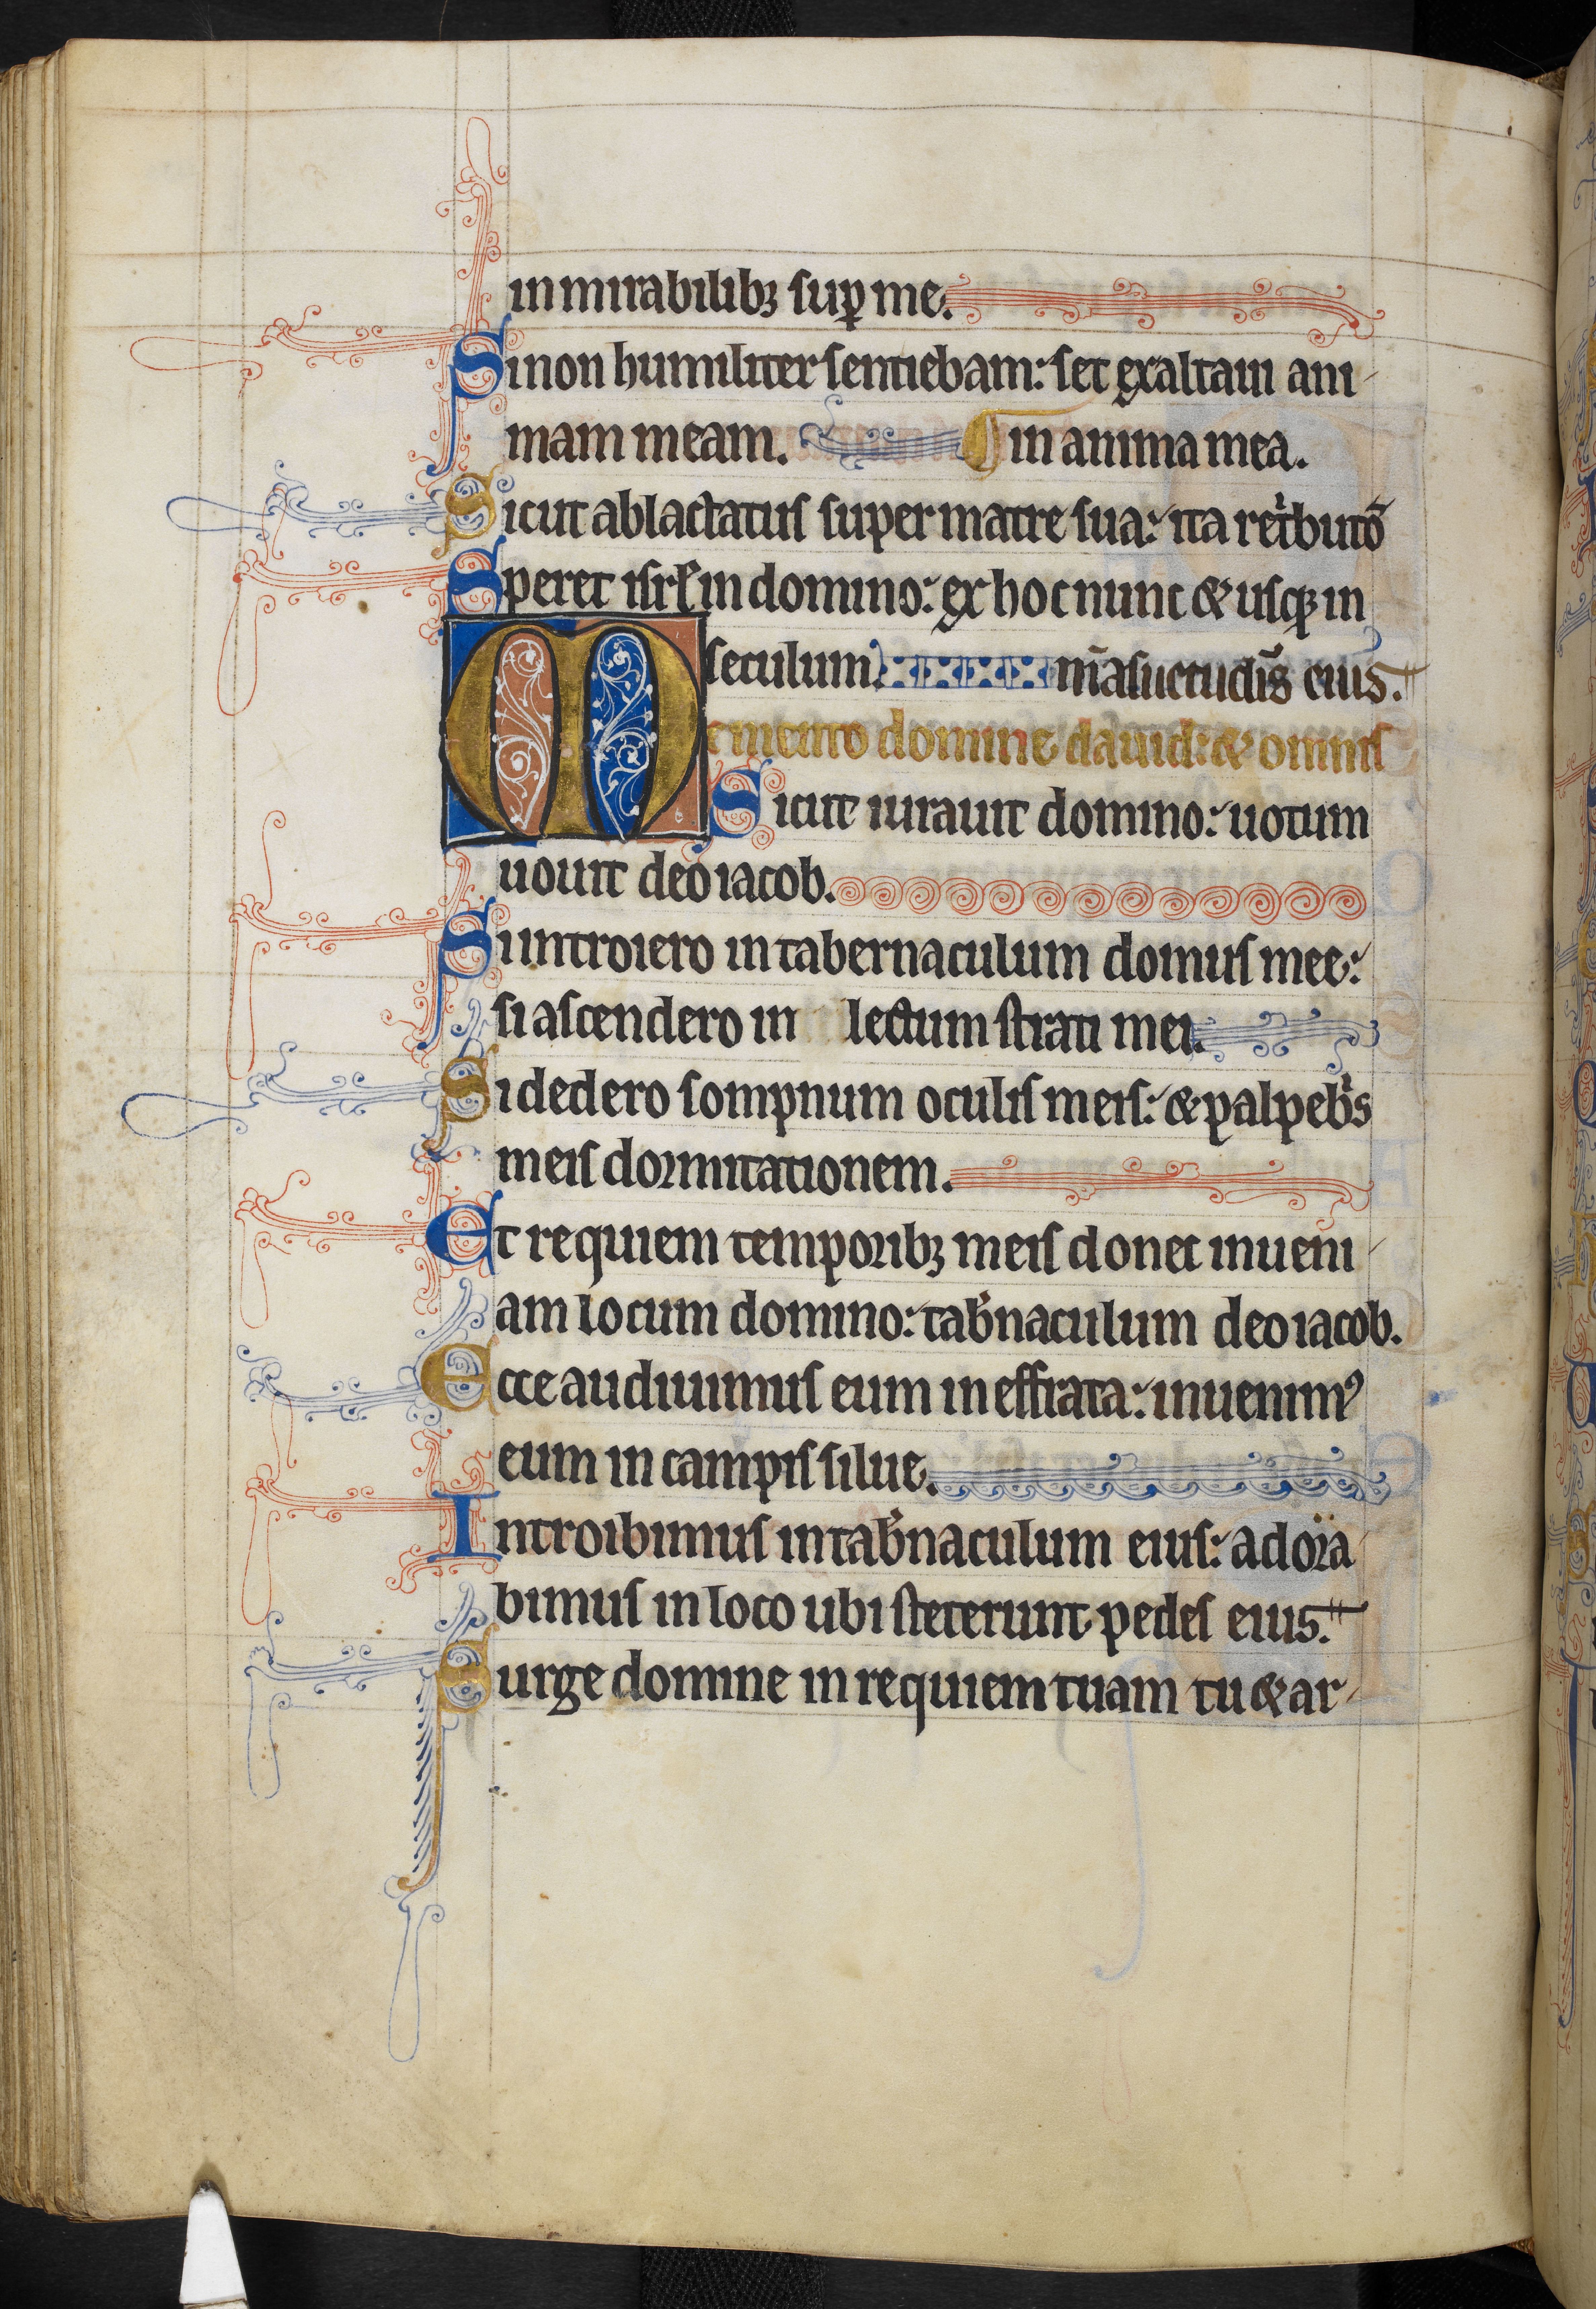 in mirabilibꝫ suꝑ me.
Si non humiliter sentiebam: set exaltaui ani
mam meam. in anima mea.
Sicut ablactatus super matre sua: ita retͥbutō
Speret isrl̕ in domino: ex hoc nunc & usqꝫ in
seculum. m̄asuetudīs eius.
Memento domine dauid: & omnis
Sicut iurauit domino: uotum
uouit deo iacob.
Si introiero in tabernaculum domus mee:
si ascendero in lectum strati mei.
Si dedero sompnum oculis meis: & palpebͥs
meis dormitationem.
Et requiem temporibꝫ meis donec inueni
am locum domino: tab̕naculum deo iacob.
Ecce audiuimus eum in effrata: inuenimꝰ
eum in campis silue.
Introibimus in tab̕naculum eius: adora
bimus in loco ubi steterunt pedes eius.
Surge domine in requiem tuam tu & ar